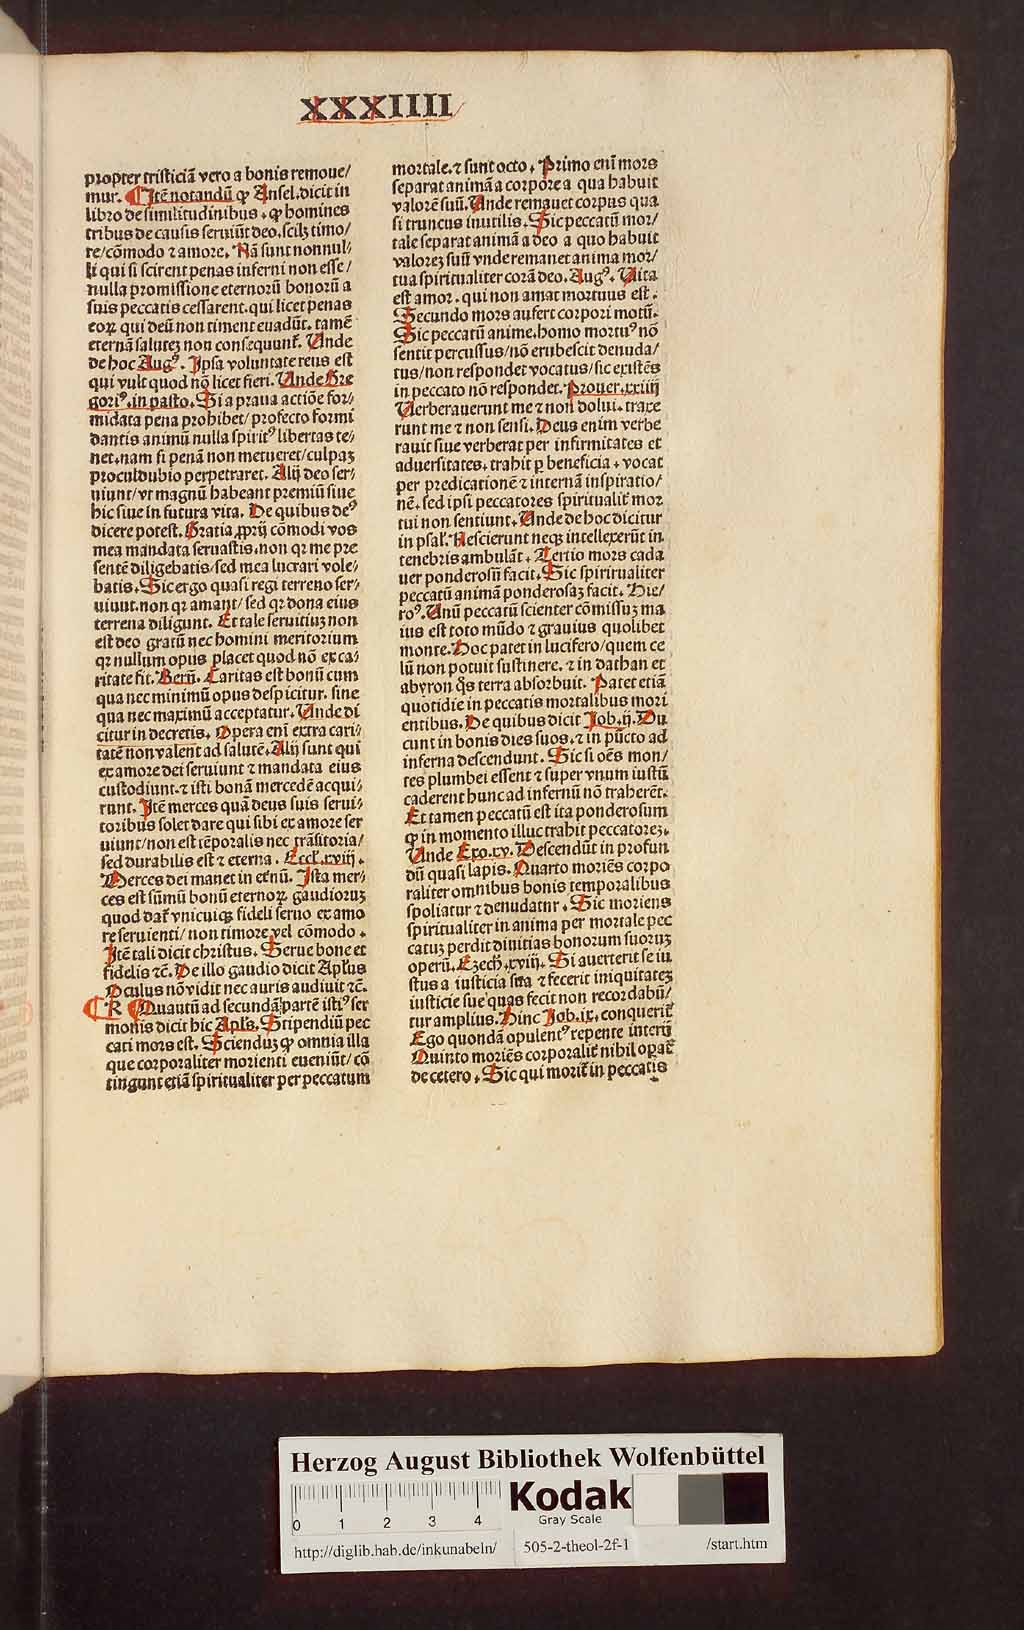 XXXIIII
propter tristiciā vero a bonis remoue/
mur. ¶ Jtē notandū ꝙ Ansel. dicit in
libro de similitudinibus. ꝙ homines
tribus de causis seruiūt deo. scilꝫ timo/
re/cōmodo ⁊ amore. Nā sunt nonnul/
li qui si scirent penas inferni non esse/
nulla promissione eternorū bonorū a
suis peccatis cessarent. qui licet penas
eoꝝ qui deū non timent euadūt. tamē
eternā saluteꝫ non consequunt̄. Unde
de hoc Augꝰ. Jpsa voluntate reus est
qui vult quod nō licet fieri. Unde Gre
goriꝰ. in pasto. Si a praua actiōe for/
midata pena prohibet/profecto formi
dantis animū nulla spiritꝰ libertas te/
net. nam si penā non metueret/culpaꝫ
proculdubio perpetraret. Alij deo ser/
uiunt/vt magnū habeant premiū siue
hic siue in futura vita. De quibus deꝰ
dicere potest. Gratia ꝓprij cōmodi vos
mea mandata seruastis. non qꝛ me pre
sentē diligebatis/sed mea lucrari vole/
batis. Sic ergo quasi regi terreno ser/
uiunt. non qꝛ amant/sed qꝛ dona eius
terrena diligunt. Et tale seruitiuꝫ non
est deo gratū nec homini meritorium
qꝛ nullum opus placet quod nō ex ca/
ritate fit. Bern̄. Caritas est bonū cum
qua nec minimū opus despicitur. sine
qua nec maximū acceptatur. Unde di
citur in decretis. Opera enī extra cari/
tatē non valent ad salutē. Alij sunt qui
ex amore dei seruiunt ⁊ mandata eius
custodiunt. ⁊ isti bonā mercedē acqui/
runt. Jtē merces quā deus suis serui/
toribus solet dare qui sibi ex amore ser
uiunt/non est tēporalis nec trāsitoria/
sed durabilis est ⁊ eterna. Eccl̄. xviij.
Merces dei manet in et̄nū. Jsta mer/
ces est sūmū bonū eternoꝝ gaudioruꝫ
quod dat̄ vnicuiqꝫ fideli seruo ex amo
re seruienti/non timore vel cōmodo.
Jtē tali dicit christus. Serue bone et
fidelis ⁊c̄. De illo gaudio dicit Apl̄us
Oculus nō vidit nec auris audiuit ⁊c̄.
¶ R ¶ Quantū ad secundā partē istiꝰ ser
monis dicit hic Apl̄s. Stipendiū pec
cati mors est. Scienduꝫ ꝙ omnia illa
que corporaliter morienti eueniūt/cō
tingunt etiā spiritualiter per peccatum
mortale. ⁊ sunt octo. Primo enī mors
separat animā a corpore a qua habuit
valorē suū. Unde remanet corpus qua
si truncus inutilis. Sic peccatū mor/
tale separat animā a deo a quo habuit
valoreꝫ suū vnde remanet anima mor/
tua spiritualiter corā deo. Augꝰ. Uita
est amor. qui non amat mortuus est.
Secundo mors aufert corpori motū.
Sic peccatū anime. homo mortuꝰ nō
sentit percussus/nō erubescit denuda/
tus/non respondet vocatus/sic existēs
in peccato nō respondet. Prouer. xxiij
Uerberauerunt me ⁊ non dolui. traxe
runt me ⁊ non sensi. Deus enim verbe
rauit siue verberat per infirmitates et
aduersitates. trahit ꝑ beneficia. vocat
per predicationē ⁊ internā inspiratio/
nē. sed ipsi peccatores spiritualit̄ mor
tui non sentiunt. Unde de hoc dicitur
in psal̄. Nescierunt neqꝫ intellexerūt in
tenebris ambulāt. Tertio mors cada
uer ponderosū facit. Sic spiritualiter
peccatū animā ponderosaꝫ facit. Hie/
roꝰ. Unū peccatū scienter cōmissuꝫ ma
ius est toto mūdo ⁊ grauius quolibet
monte. Hoc patet in lucifero/quem ce
lū non potuit sustinere. ⁊ in dathan et
abyron q̄s terra absorbuit. Patet etiā
quotidie in peccatis mortalibus mori
entibus. De quibus dicit Job. ij. Du
cunt in bonis dies suos. ⁊ in pūcto ad
inferna descendunt. Sic si oēs mon/
tes plumbei essent ⁊ super vnum iustū
caderent hunc ad infernū nō traherēt.
Et tamen peccatū est ita ponderosum
ꝙ in momento illuc trahit peccatoreꝫ.
Unde Exo. xv. Descendūt in profun
dū quasi lapis. Quarto moriēs corpo
raliter omnibus bonis temporalibus
spoliatur ⁊ denudatur. Sic moriens
spiritualiter in anima per mortale pec
catuꝫ perdit diuitias bonorum suoruꝫ
operū. Ezech̄. xviij. Si auerterit se iu
stus a iusticia sua ⁊ fecerit iniquitateꝫ
iusticie sue quas fecit non recordabū/
tur amplius. Hinc Job. ix. conquerit̄
Ego quondā opulentꝰ repente interij
Quinto moriēs corporalit̄ nihil oꝑat̄
de cetero. Sic qui morit̄ in peccatis
Herzog August Bibliothek Wolfenbüttel
0 1 2 3 4
Kodak
Gray Scale
http://diglib.hab.de/inkunabeln/ 505-2-theol-2f-1 /start.htm